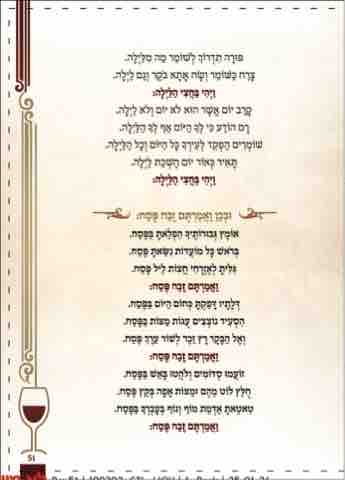 פּוּרָה תִדְרוֹךְ לְשׁוֹמֵר מַה מִלַּיְלָה.
צָרַח כַּשּׁוֹמֵר וְשָׂח אָתָא בֹקֶר וְגַם לַיְלָה.
וַיְהִי בַּחֲצִי הַלַּיְלָה:
קָרֵב יוֹם אֲשֶׁר הוּא לֹא יוֹם וְלֹא לַיְלָה.
רָם הוֹדַע כִּי לְךָ הַיּוֹם אַף לְךָ הַלַּיְלָה.
שׁוֹמְרִים הַפְקֵד לְעִירְךָ כָּל הַיּוֹם וְכָל הַלַּיְלָה.
תָּאִיר כְּאוֹר יוֹם חֶשְׁכַת לַיְלָה.
וַיְהִי בַּחֲצִי הַלַּיְלָה:
וּבְכֵן וַאֲמַרְתֶּם זֶבַח פֶּסַח:
אוֹמֶץ גְּבוּרוֹתֶיךָ הִפְלֵאתָ בַּפֶּסַח.
בְּרֹאשׁ כָּל מוֹעֲדוֹת נִשֵּׂאתָ פֶּסַח.
גִּלִּיתָ לְאֶזְרָחִי חֲצוֹת לֵיל פֶּסַח.
וַאֲמַרְתֶּם זֶבַח פֶּסַח:
דְּלָתָיו דָּפַקְתָּ כְּחוֹם הַיּוֹם בַּפֶּסַח.
הִסְעִיד נוֹצְצִים עֻגוֹת מַצּוֹת בַּפֶּסַח.
וְאֶל הַבָּקָר רָץ זֵכֶר לְשׁוֹר עֵרֶךְ פֶּסַח.
וַאֲמַרְתֶּם זֶבַח פֶּסַח:
זוֹעֲמוּ סְדוֹמִים וְלֹהֲטוּ בָּאֵשׁ בַּפֶּסַח.
חֻלַּץ לוֹט מֵהֶם וּמַצּוֹת אָפָה בְּקֵץ פֶּסַח.
טִאטֵאתָ אַדְמַת מוֹף וְנוֹף בְּעָבְרְךָ בַּפֶּסַח.
וַאֲמַרְתֶּם זֶבַח פֶּסַח:
51